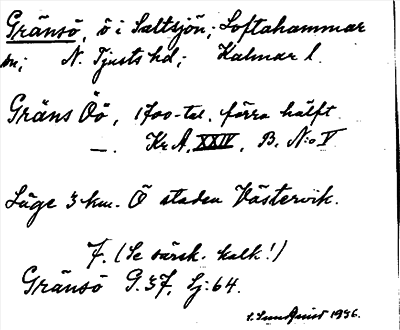 Gränsö, ö i Saltsjön; Loftahammar
sn; N. Tjusts hd; Kalmar l.
Gräns Öö, 1700-tal. förra hälft
—. Kr. A. XXIV, B. N:o V
Läge 3 km. Ö staden Västervik.
7. (Se särsk. kalk!)
Gränsö G. 37, Lj: 64.
S. Lundquist 1936.